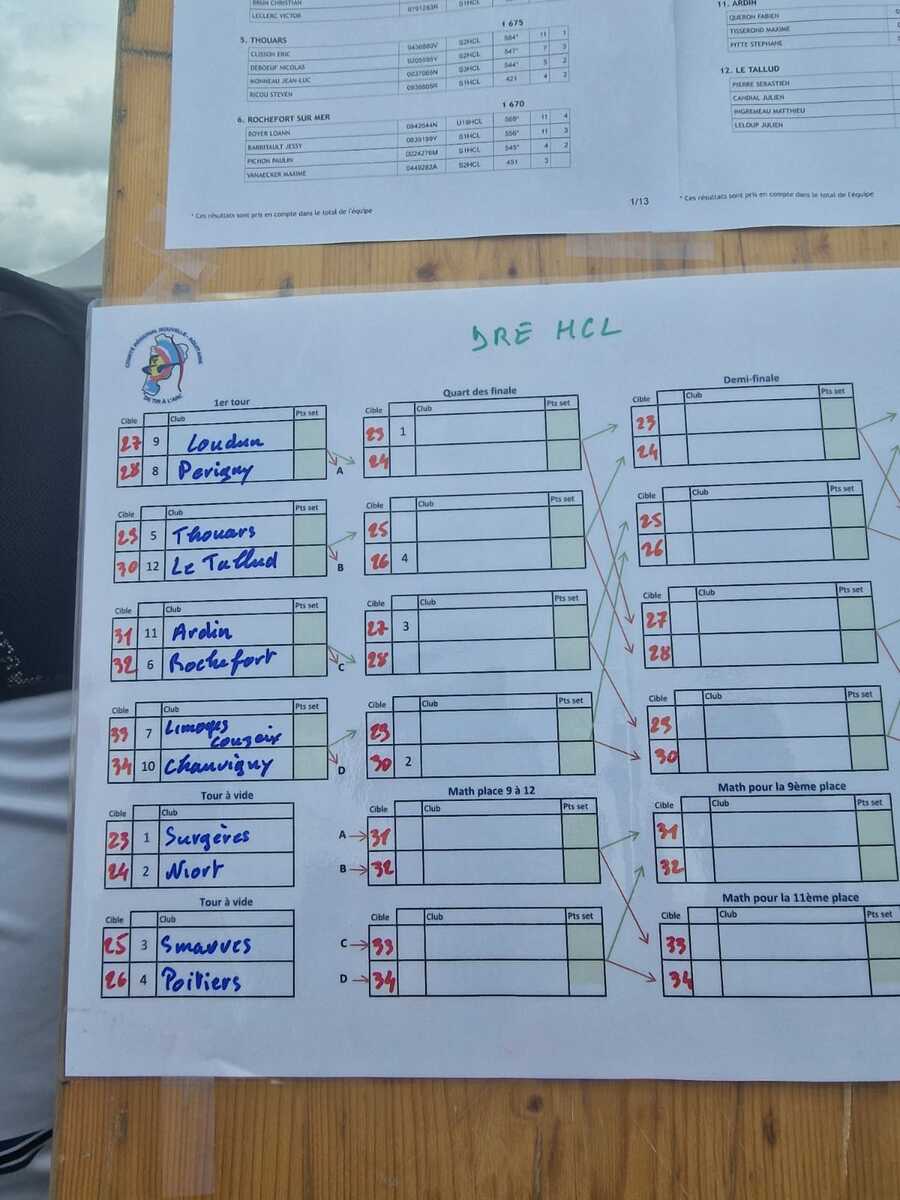 BRUN CHRISTIAN S1HCL
LECLERC VICTOR
1 675
5. THOUARS
CLISSON ERIC 0436880V S2HCL 584* 11 1
DEBOEUF NICOLAS S2HCL 547* 7 3
MONNEAU JEAN-LUC S3HCL 544* 5 2
RICOU STEVEN S1HCL 421 4 2
1 670
6. ROCHEFORT SUR MER
BOYER LOANN 0942044N U18HCL 569* 11 4
BARRITAULT JESSY S1HCL 556* 11 3
PICHON PAULIN S1HCL 545* 4 2
VANAECKER MAXIME 0449283A S2HCL 451 3
* Ces résultats sont pris en compte dans le total de l'équipe
1/13
11. ARDIN
QUERON FABIEN
TISSEROND MAXIME
PITTE STEPHANE
12. LE TALLUD
PIERRE SEBASTIEN
CANDIAL JULIEN
INGREMEAU MATTHIEU
LELOUP JULIEN
* Ces résultats sont pris en compte dans le total de l'équipe
COMITÉ RÉGIONAL NOUVELLE-AQUITAINE
DE TIR À L'ARC
DRE HCL
1er tour
Cible Club Pts set
27 9 Loudun
28 8 Perigny
A
Cible Club Pts set
29 5 Thouars
30 12 Le Tallud
B
Cible Club Pts set
31 11 Ardin
32 6 Rochefort
C
Cible Club Pts set
33 7 Limoges Couzeix
34 10 Chauvigny
D
Tour à vide
Cible Club
23 1 Surgères
24 2 Niort
Tour à vide
Cible Club
25 3 Smarves
26 4 Poitiers
Quart des finale
Cible Club Pts set
23 1
24
Cible Club Pts set
25
26 4
Cible Club Pts set
27 3
28
Cible Club Pts set
29
30 2
Math place 9 à 12
Cible Club Pts set
A 31
B 32
Cible Club Pts set
C 33
D 34
Demi-finale
Cible Club Pts set
23
24
Cible Club Pts set
25
26
Cible Club Pts set
27
28
Cible Club Pts set
29
30
Math pour la 9ème place
Cible Club Pts set
31
32
Math pour la 11ème place
Cible Club Pts set
33
34